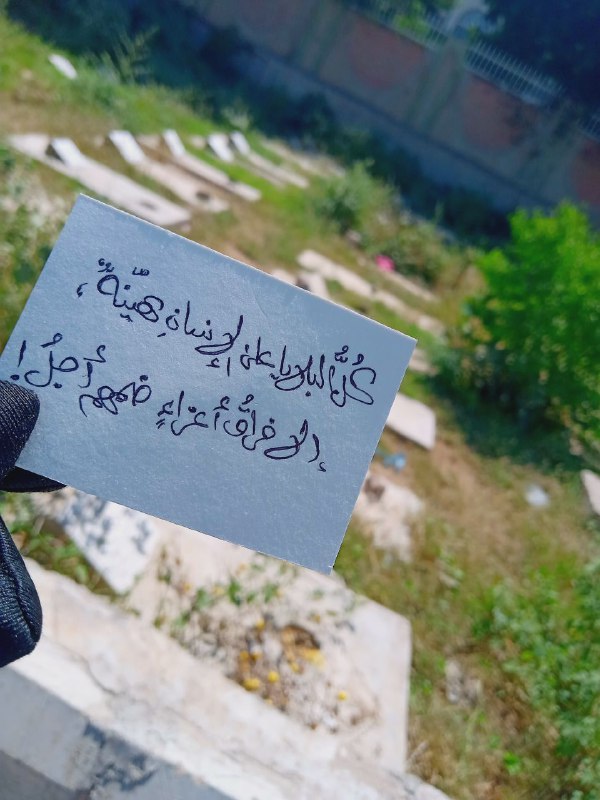 كُلُّ البلايا على الإنسانِ هيّنةٌ،
إلا فراقُ أعزاءٍ ضمهم أجلُ!